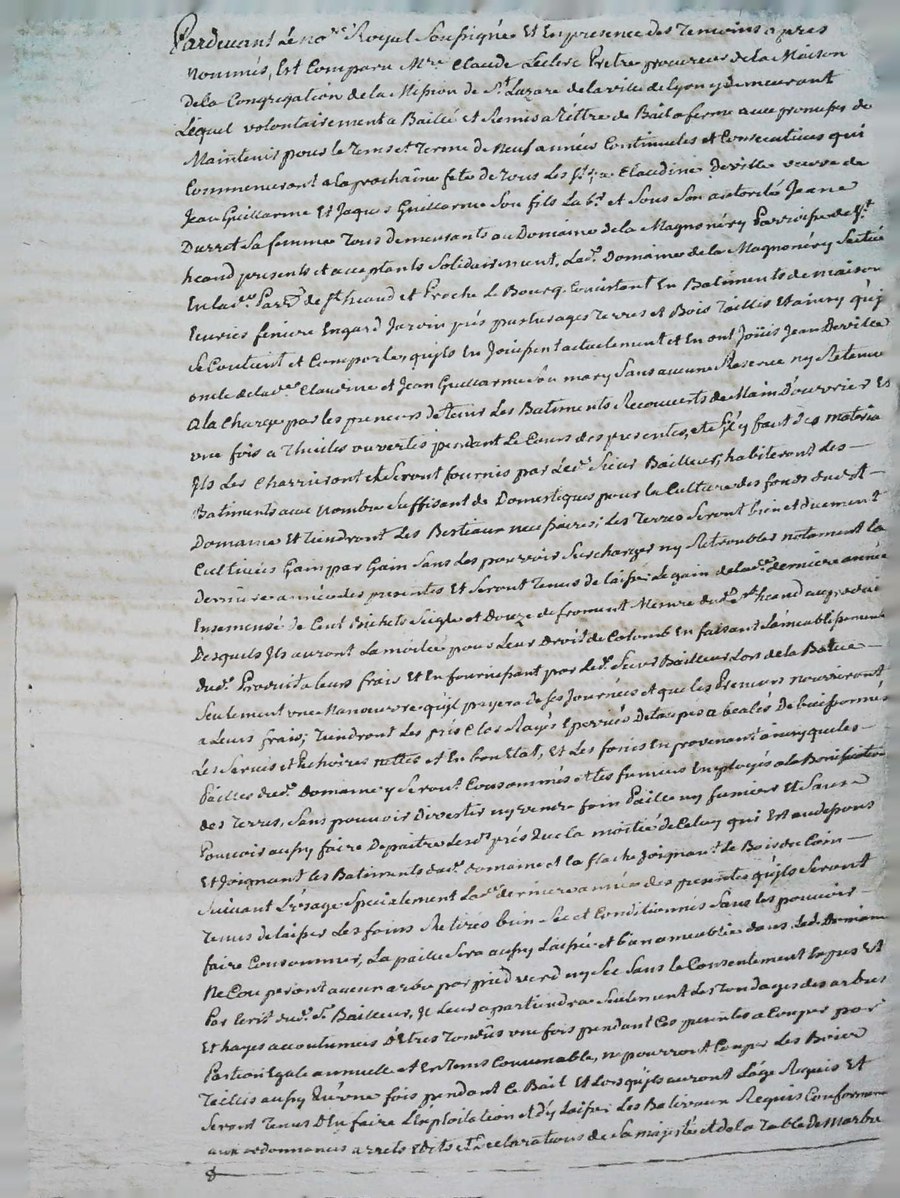 Pardevant le no.re Royal Soussigné Et En presence des Temoins apres
nommés, Est Comparu M.re Claude Leclerc Pretre procureur de la Maison
de la Congregation de la Mission de S.t Lazare de la ville de Lyon y demeurant
Lequel volontairement a Baillé et Remis a Tittre de Bail a ferme avec promesse de
Maintenir pour le Tems et Terme de Neuf années Continuelles et Consecutives qui
Commenceront a la prochaine fete de Tous Les S.ts a Claudine Deville veuve de
Jean Guillarme Et Jaques Guillarme Son fils Lab.r et Sous Son autorité Jeane
Durret Sa femme Tous demeurants au Domaine de la Magnonéry Parroisse de S.t
heand presents et acceptants Solidairement, Led. Domaine de la Magnonéry Scitué
En lad. Parr. de S.t heand et Proche Le Bourg Consistant En Batiments de maison
Ecuries feniere Engard Jardin prés pasturages Terres et Bois Taillis Et ainsy qu'il
Se Contient et Comporte, quils En Joüissent actuellement et En ont Joüis Jean Deville
oncle de lad. Claudine et Jean Guillarme Son mary Sans aucune Reserve ny Retenue
a la Charge par les preneurs de tenir Les Batiments Recouverts de Main D'ouvrier Et
une fois a Thuiles ouvertes pendant Le Cours des presentes, et S'il y faut des materiaux
Ils Les Charrieront et Seront fournis par Led. Sieur Bailleur, habiteront Les
Batiments avec Nombre Suffisant de Domestiques pour la Culture des fonds dudit
Domaine Et Tiendront Les Bestiaux necessaires; Les Terres Seront bien et duement
Cultivées Gain par Gain Sans Les pouvoir Surcharger ny Retroubler notament la
Derniere année des presentes Et Seront Tenus de laisser Le gain de lad. derniere année
Ensemensé de Cent Bichets Seigle et Douze de froment Mesure dud. S.t heand au produit
Desquels Ils auront La moitié pour Leur Droit de Colomb En faisant L'ameublissement
dud. Produit a leurs frais Et En fournissant par Led. Sieur Bailleur Lors de la Batue
Seulement une Manoeuvre qu'il payera de Ses Journées et que les Preneurs nourriront
a Leurs frais; Tiendront Les prés Clos Rayés Epierrés Detaupés a béalés De buissonnés
Les Serves et Pechoires nettes et En bon Etat, Et Les foins En provenant ainsy que les
Pailles dud. Domaine y Seront Consommés et les fumiers Employés a la Bonification
des Terres, Sans pouvoir Divertir ny Vendre foin Paille ny fumiers Et Sans
Pouvoir aussy faire Depaitre Lesd. prés Que la moitié de Celuy qui Est au dessous
Et Joignant les Batiments dud. domaine et la flache Joignant Le Bois du Coin
Suivant L'usage Specialement Lad. derniere année des presentes qu'ils Seront
Tenus de laisser Les foins Retirés bien Sec et Conditionnés Sans les pouvoir
faire Consommer, La paille Sera aussy Laissée et bien ameublée dans Led. Domaine
Ne Couperont aucun arbre par pied verd ny Sec Sans le Consentement Expres Et
Par Ecrit dud. S.r Bailleur, Il Leur apartiendra Seulement Les Tondages des arbres
Et hayes accoutumés d'Etres Tondus une fois pendant Ces presentes a Couper par
Portion Egale annuelle et En Tems Convenable, ne pourront Couper Les Bois
Taillis aussy Qu'une fois pendant Ce Bail Et Lorsqu'ils auront L'age Requis Et
Seront Tenus D'En faire L'Exploitation et d'y Laisser Les Baliveaux Requis Conformement
aux ordonnances arrets Edits et Declarations de Sa majesté et de la Table de Marbre